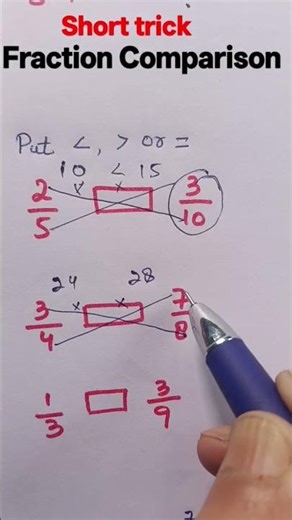 Short trick
Fraction Comparison
Put <, > or =
10 < 15
2/5 3/10
24 28
3/4 7/8
1/3 3/9